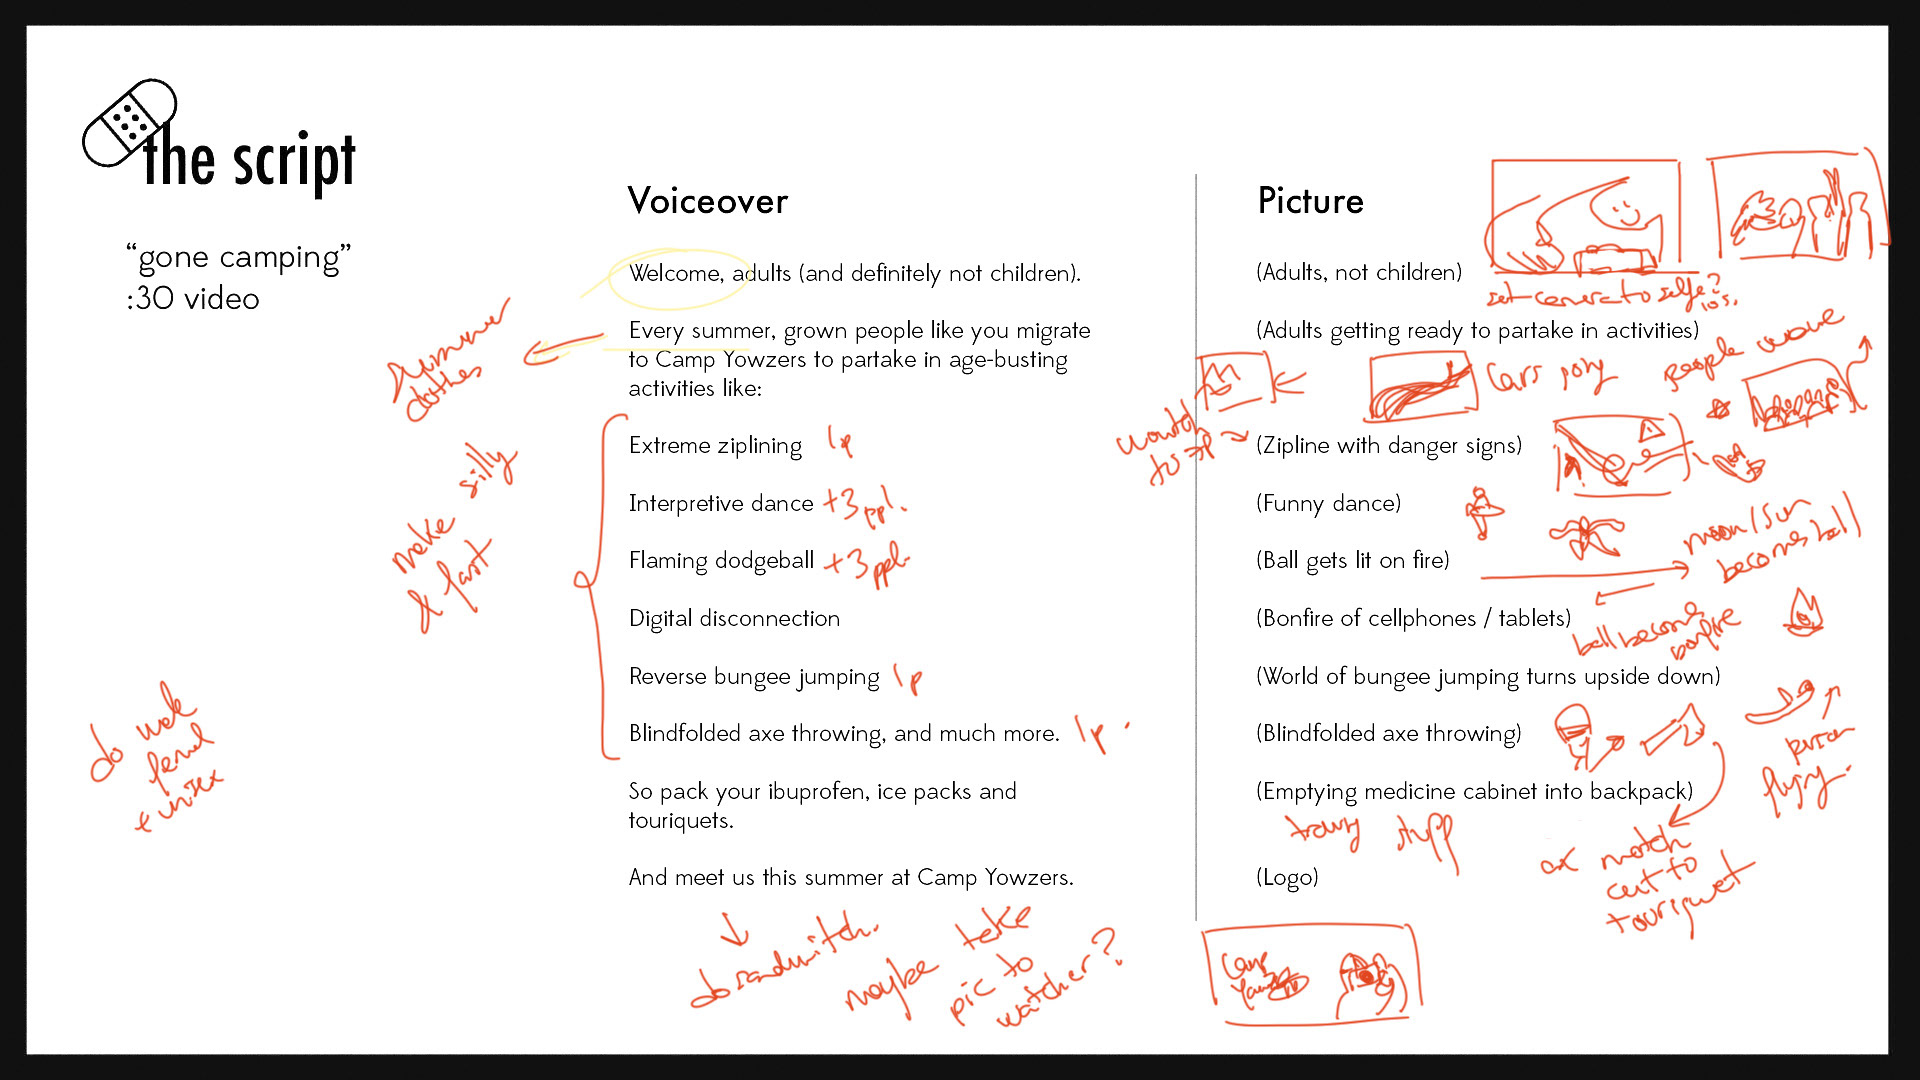 the script
“gone camping”
:30 video
Voiceover
Welcome, adults (and definitely not children).
Every summer, grown people like you migrate
to Camp Yowzers to partake in age-busting
activities like:
Extreme ziplining 1p
Interpretive dance +3 ppl.
Flaming dodgeball +3 ppl.
Digital disconnection
Reverse bungee jumping 1p
Blindfolded axe throwing, and much more. 1p.
So pack your ibuprofen, ice packs and
touriquets.
And meet us this summer at Camp Yowzers.
summer
clothes
make silly
& fast
maybe take
pic to
watcher?
Picture
(Adults, not children)
set camera to selfie?
10s.
(Adults getting ready to partake in activities)
people wave
Cars
(Zipline with danger signs)
(Funny dance)
(Ball gets lit on fire)
moon/sun
becomes ball
(Bonfire of cellphones / tablets)
ball becomes
bonfire
(World of bungee jumping turns upside down)
(Blindfolded axe throwing)
person
flying.
(Emptying medicine cabinet into backpack)
stuff
ax match
cut to
touriquet
(Logo)
Camp